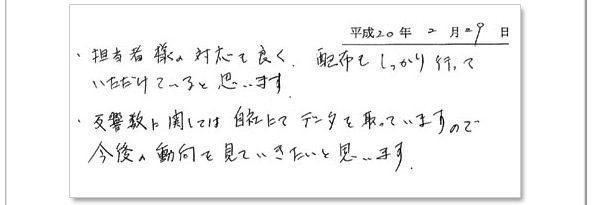 平成20年 2月29日
・担当者様の対応も良く、配布もしっかり行って
いただけていると思います。
・反響数に関しては自社にてデータを取っていますので
今後の動向を見ていきたいと思います。